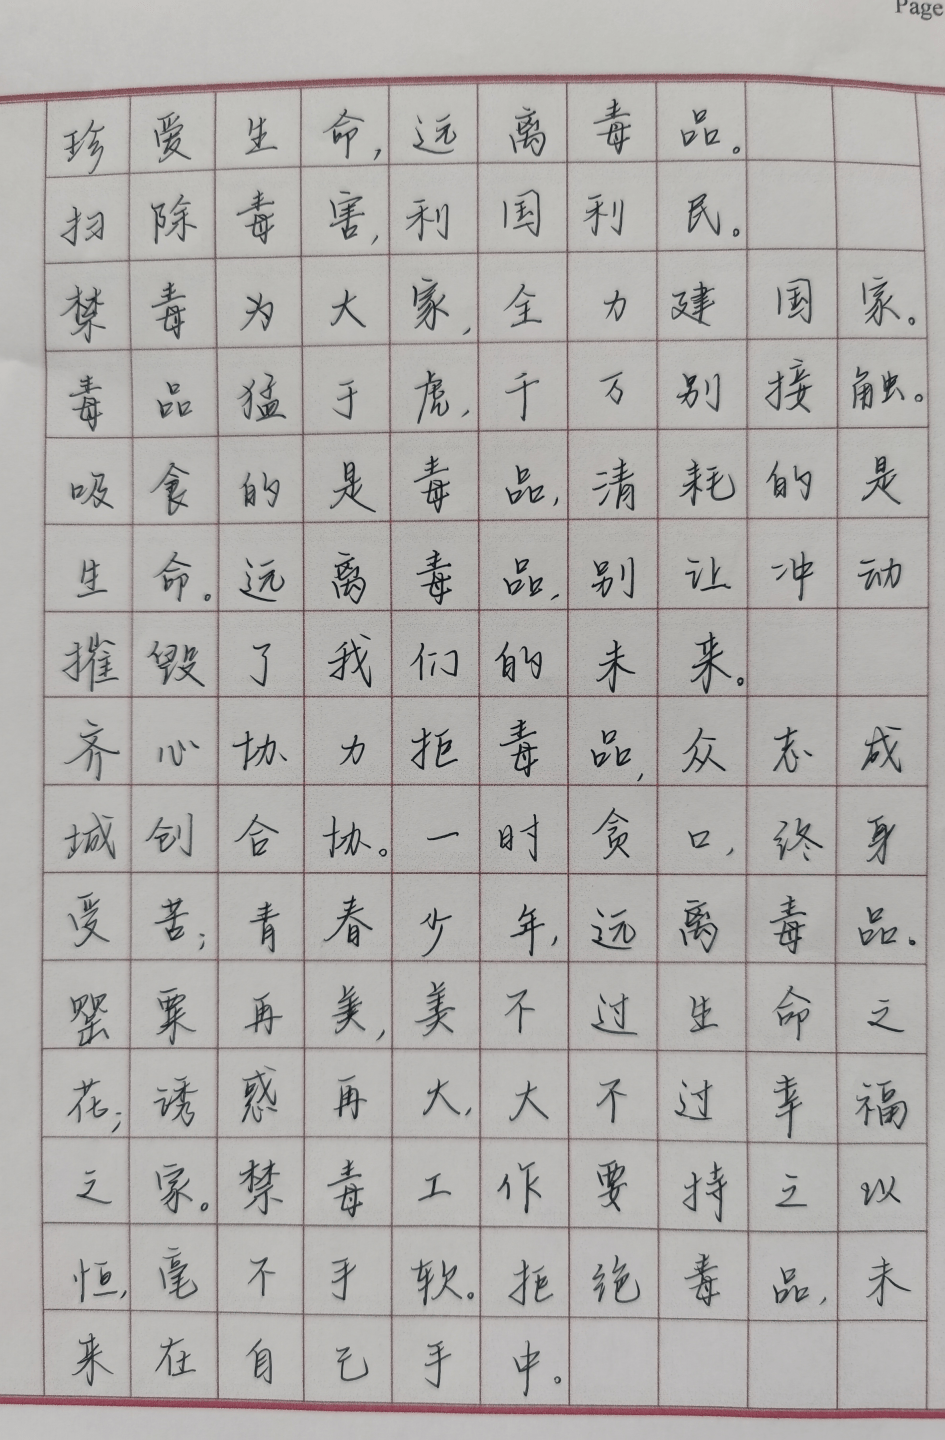 Page
珍爱生命,远离毒品。
扫除毒害,利国利民。
禁毒为大家,全力建国家。
毒品猛于虎,千万别接触。
吸食的是毒品,清耗的是
生命。远离毒品,别让冲动
摧毁了我们的未来。
齐心协力拒毒品,众志成
城创合协。一时贪口,终身
受苦;青春少年,远离毒品。
罂粟再美,美不过生命之
花;诱惑再大,大不过幸福
之家。禁毒工作要持之以
恒,毫不手软。拒绝毒品,未
来在自己手中。